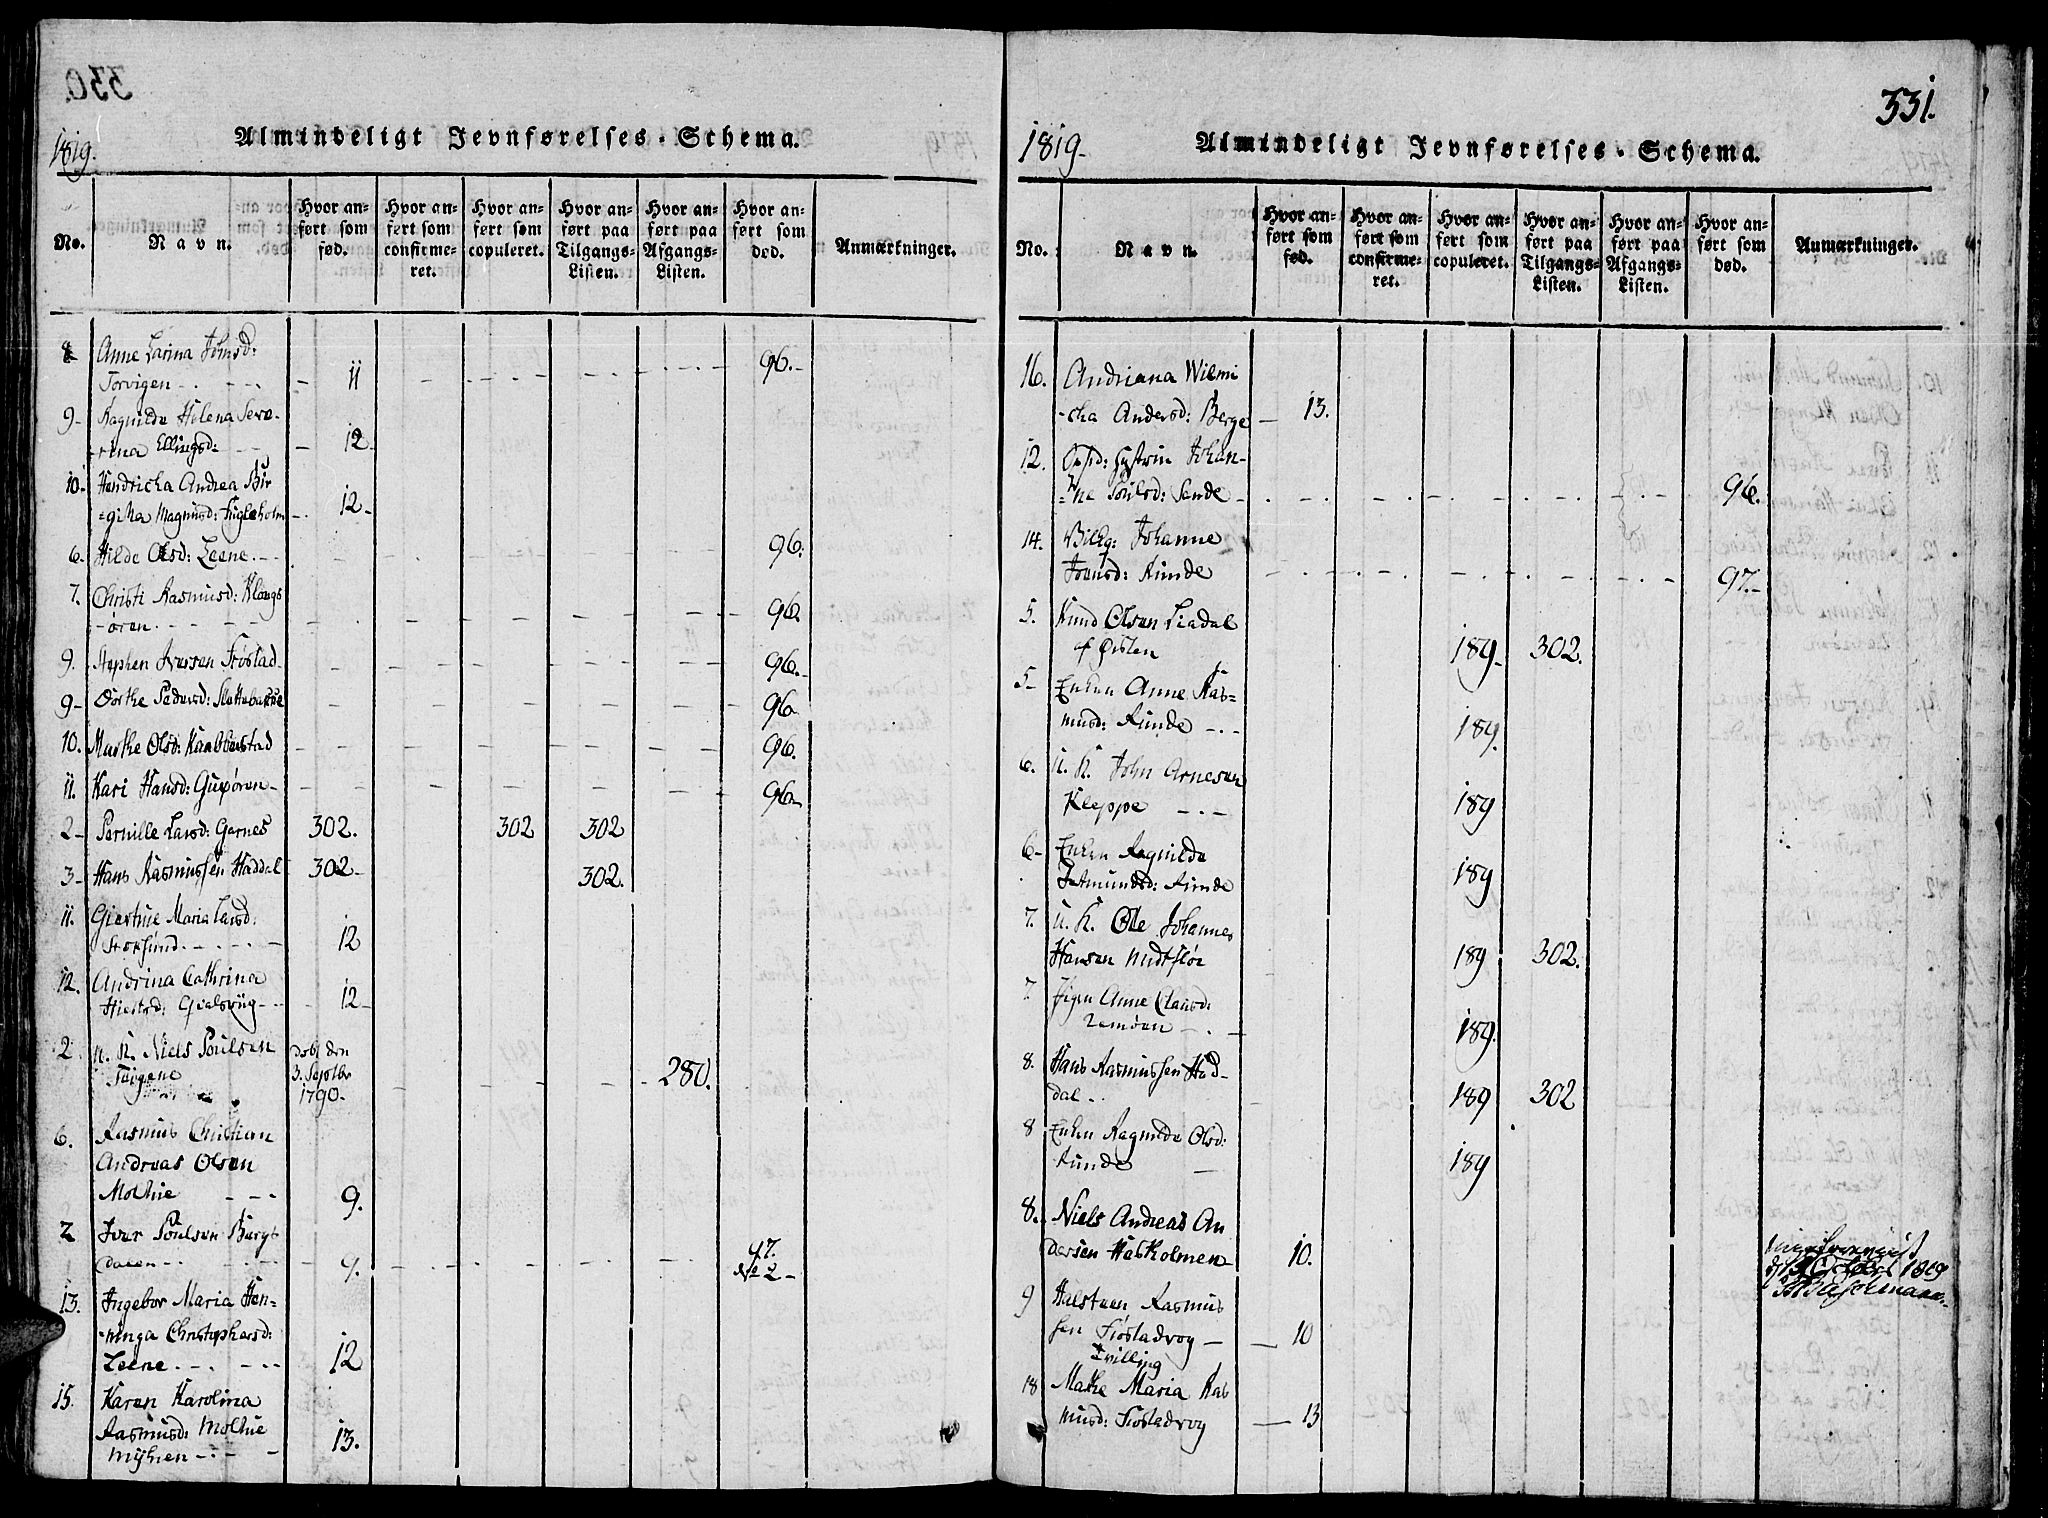 330.
1819.
Almindeligt Jevnførelses-Schema.
No.
Navn.
Hvor an-
ført som
fød.
Hvor an-
ført som
confirme-
ret.
Hvor an-
ført som
copuleret.
Hvor an-
ført paa
Tilgangs-
Listen.
Hvor an-
ført paa
Afgangs-
Listen.
Hvor an-
ført som
død.
Anmærkninger.
8 Anne Larina Johnsd:
Torvigen 11 96.
9 Ragnilde Helena Seve-
rina Ellingsd: 12
10 Hendricha Andrea Bir
=gitta Magnusd: Fugleholm 12
6. Hilde Olsd: Leene 96.
7. Christi Rasmusd: Klongs
øren 96.
9. Stephen Iversen Frøstad 96.
9 Dorthe Pedersd: 96
10. Marthe Olsd: Kaabberstad 96.
11. Kari Hansd: 96
2 Pernille Larsd: Garnes 302. 302 302
3 Hans Rasmussen Haddal 302 302.
11. Giertrue Maria Larsd:
Storsund 12
12. Andrina Cathrina
12
2 u. K. Niels Poulsen
døbt den
3. Septbr
1790. 280.
6. Rasmus Christian
Andreas Olsen
Moltue 9.
2 Iver Poulsen Burgs
dalen 9. 47.
No 2
13. Ingebor Maria Hen=
ninga Christophersd:
Leene 12
15. Karen Karolina
Rasmusd: Moltue
Myhren 13.
331.
1819.
Almindeligt Jevnførelses-Schema.
No.
Navn.
Hvor an-
ført som
fød.
Hvor an-
ført som
confirme-
ret.
Hvor an-
ført som
copuleret.
Hvor an-
ført paa
Tilgangs-
Listen.
Hvor an-
ført paa
Afgangs-
Listen.
Hvor an-
ført som
død.
Anmærkninger.
16. Andriana Wilmi
cha Andersd: Berge 13.
12. Johan-
ne Poulsd: Sande 96.
14. Johanne
Iversd: Runde 97.
5. Knud Olsen Liadal
af Ørsten 189 302.
5 Enken Anne Ras=
musd: Runde 189.
6. u. K. John Arnesen
Kleppe 189
6 Enken Ragnilde
Runde 189
7. u. K. Ole Johannes
Hansen 189 302.
7. Pigen Anne Clausd:
Remøen 189.
8. Hans Rasmussen Had-
dal 189 302
8 Enken Ragnilde Olsd:
Runde 189
8. Niels Andreas An
dersen Hatholmen 10.
1819
9 Halsteen Rasmus
sen 10
Tvilling
18 Maria Ras
musd: 13